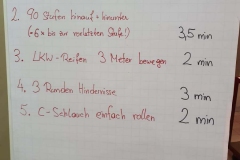 2. 90 Stufen hinauf + hinunter
(-6x bis zur vorletzten Stufe!) 3,5 min
3. LKW-Reifen 3 Meter bewegen 2 min
4. 3 Runden Hindernisse 3 min
5. C-Schlauch einfach rollen 2 min